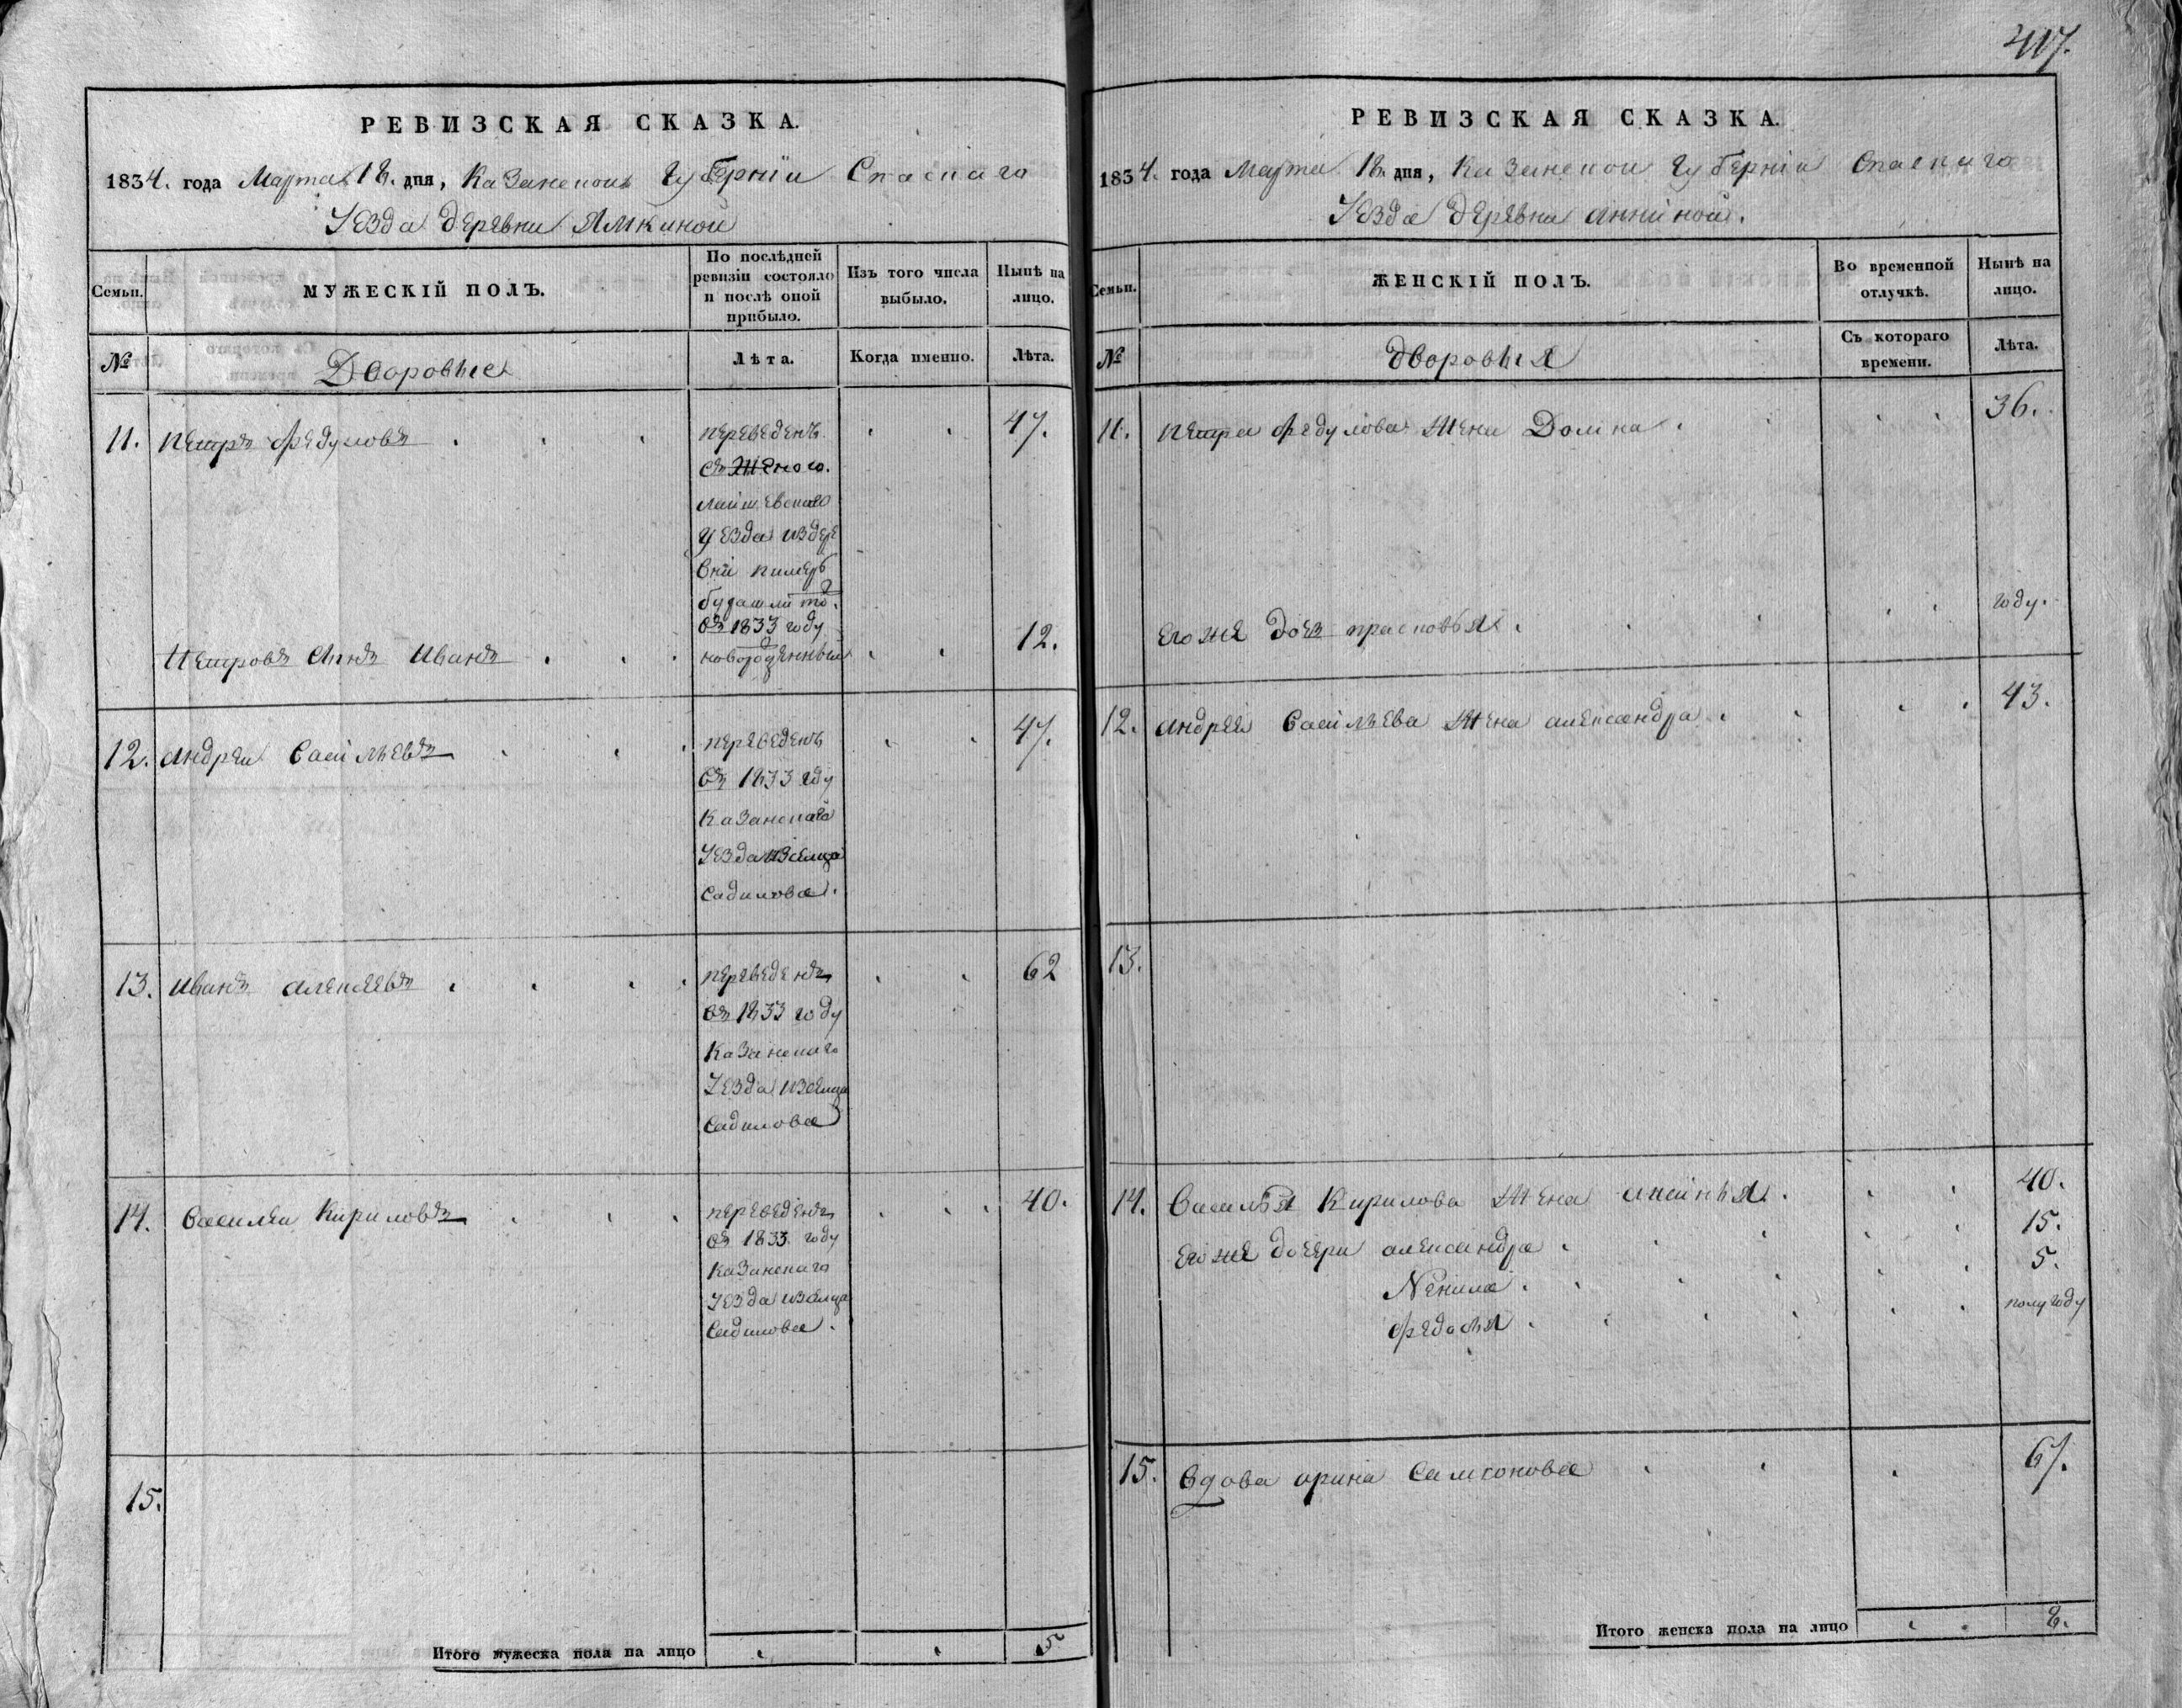 417.
РЕВИЗСКАЯ СКАЗКА.
1834. года Марта 18. дня, Казанской Губерніи Спаскаго
Уезда деревни Ямкиной
Семьи.
МУЖЕСКІЙ ПОЛЪ.
По послѣдней ревизіи состояло и послѣ оной прибыло.
Изъ того числа выбыло.
Нынѣ на лицо.
№
Дворовые
Лѣта.
Когда именно.
Лѣта.
11. Петръ Федуловъ
переведенъ
47.
съ
лаишевскаго
уезда из дере
вни
въ 1833 году
Петровъ сынъ Иванъ
новорожденный
12.
12. андреи васильевъ
переведенъ
47.
въ 1833 году
Казанскаго
Уезда изселца
Садилова.
13. иванъ алексеевъ
переведенъ
62
въ 1833 году
Казанскаго
Уезда изселца
Садилова
14. василеи Кириловъ
переведенъ
40.
въ 1833. году
Казанскаго
Уезда изселца
Садилова.
15.
Итого мужеска пола на лицо
5
РЕВИЗСКАЯ СКАЗКА.
1834. года Марта 18. дня, Казанской Губерніи Спаскаго
Уезда деревни
Семьи.
ЖЕНСКІЙ ПОЛЪ.
Во временной отлучкѣ.
Нынѣ на лицо.
№
дворовыя
Съ котораго времени.
Лѣта.
11. Петра федулова жена Домна.
36.
его же дочь прасковья.
году.
12. андрея васильева жена александра.
43.
13.
14. василья Кирилова жена аксинья.
40.
его же дочери александра.
15.
Ненила.
5.
федосья.
полугоду
15. вдова орина самсонова
67.
Итого женска пола на лицо
8.